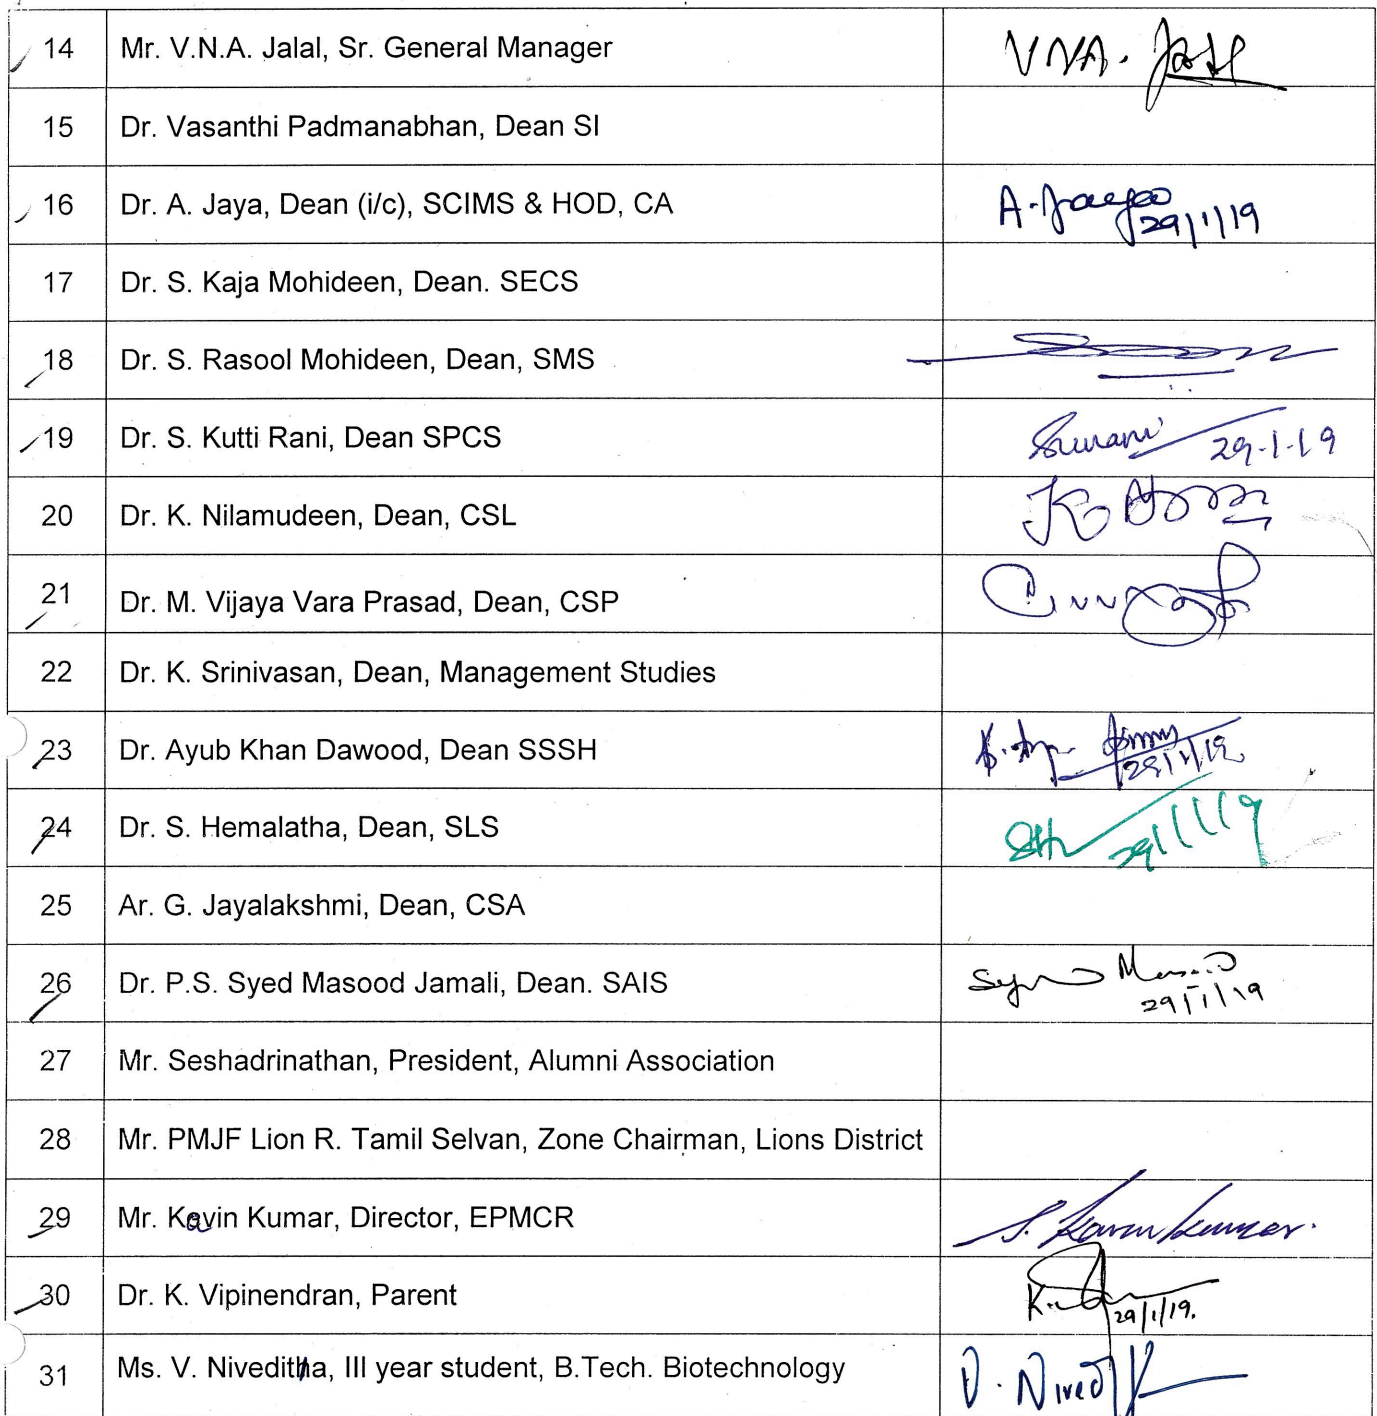 14 Mr. V.N.A. Jalal, Sr. General Manager VNA. Jalal
15 Dr. Vasanthi Padmanabhan, Dean SI
16 Dr. A. Jaya, Dean (i/c), SCIMS & HOD, CA A. Jayaa 29/1/19
17 Dr. S. Kaja Mohideen, Dean. SECS
18 Dr. S. Rasool Mohideen, Dean, SMS
19 Dr. S. Kutti Rani, Dean SPCS 29-1-19
20 Dr. K. Nilamudeen, Dean, CSL
21 Dr. M. Vijaya Vara Prasad, Dean, CSP
22 Dr. K. Srinivasan, Dean, Management Studies
23 Dr. Ayub Khan Dawood, Dean SSSH 29/1/19.
24 Dr. S. Hemalatha, Dean, SLS 29/1/19
25 Ar. G. Jayalakshmi, Dean, CSA
26 Dr. P.S. Syed Masood Jamali, Dean. SAIS Syed Masood 29/1/19
27 Mr. Seshadrinathan, President, Alumni Association
28 Mr. PMJF Lion R. Tamil Selvan, Zone Chairman, Lions District
29 Mr. Kavin Kumar, Director, EPMCR S. Kavin Kumar.
30 Dr. K. Vipinendran, Parent 29/1/19.
31 Ms. V. Niveditha, III year student, B.Tech. Biotechnology